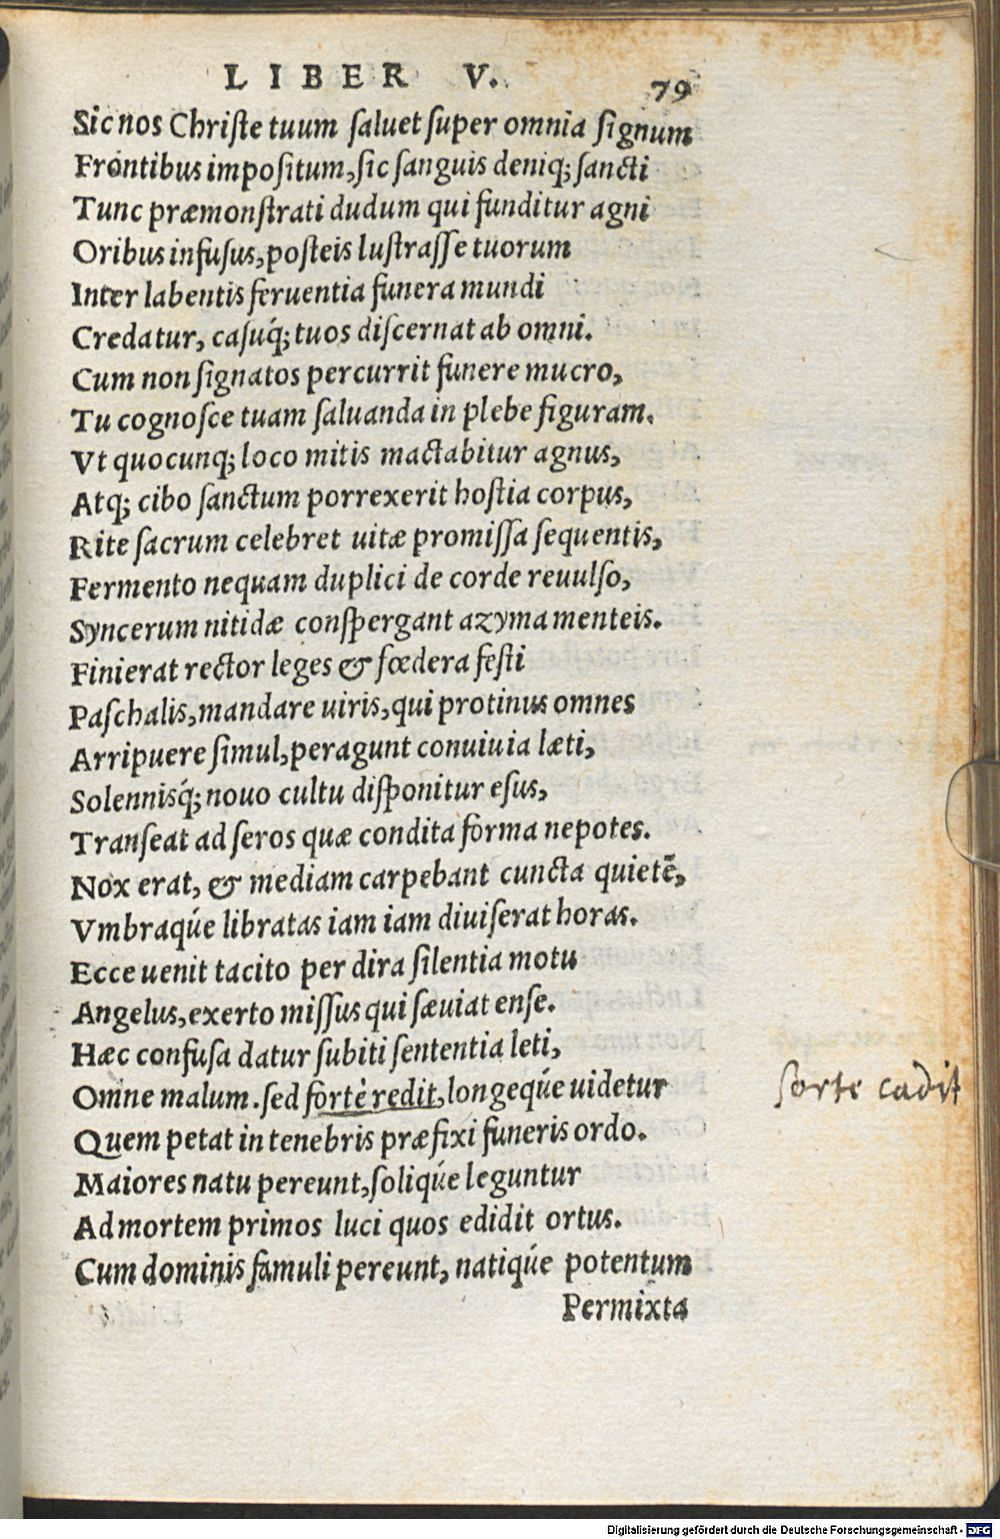 LIBER V. 79
Sic nos Christe tuum saluet super omnia signum
Frontibus impositum, sic sanguis deniq; sancti
Tunc præmonstrati dudum qui funditur agni
Oribus infusus, posteis lustrasse tuorum
Inter labentis feruentia funera mundi
Credatur, casuq́; tuos discernat ab omni.
Cum non signatos percurrit funere mucro,
Tu cognosce tuam saluanda in plebe figuram.
Vt quocunq; loco mitis mactabitur agnus,
Atq; cibo sanctum porrexerit hostia corpus,
Rite sacrum celebret uitæ promissa sequentis,
Fermento nequam duplici de corde reuulso,
Syncerum nitidæ conspergant azyma menteis.
Finierat rector leges & fœdera festi
Paschalis, mandare uiris, qui protinus omnes
Arripuere simul, peragunt conuiuia læti,
Solennisq́; nouo cultu disponitur esus,
Transeat ad seros quæ condita forma nepotes.
Nox erat, & mediam carpebant cuncta quietē,
Vmbraqúe libratas iam iam diuiserat horas.
Ecce uenit tacito per dira silentia motu
Angelus, exerto missus qui sæuiat ense.
Hæc confusa datur subiti sententia leti,
Omne malum. sed fortè redit, longeqúe uidetur
sorte cadit
Quem petat in tenebris præfixi funeris ordo.
Maiores natu pereunt, soliqúe leguntur
Ad mortem primos luci quos edidit ortus.
Cum dominis famuli pereunt, natiqúe potentum
Permixta
Digitalisierung gefördert durch die Deutsche Forschungsgemeinschaft - DFG